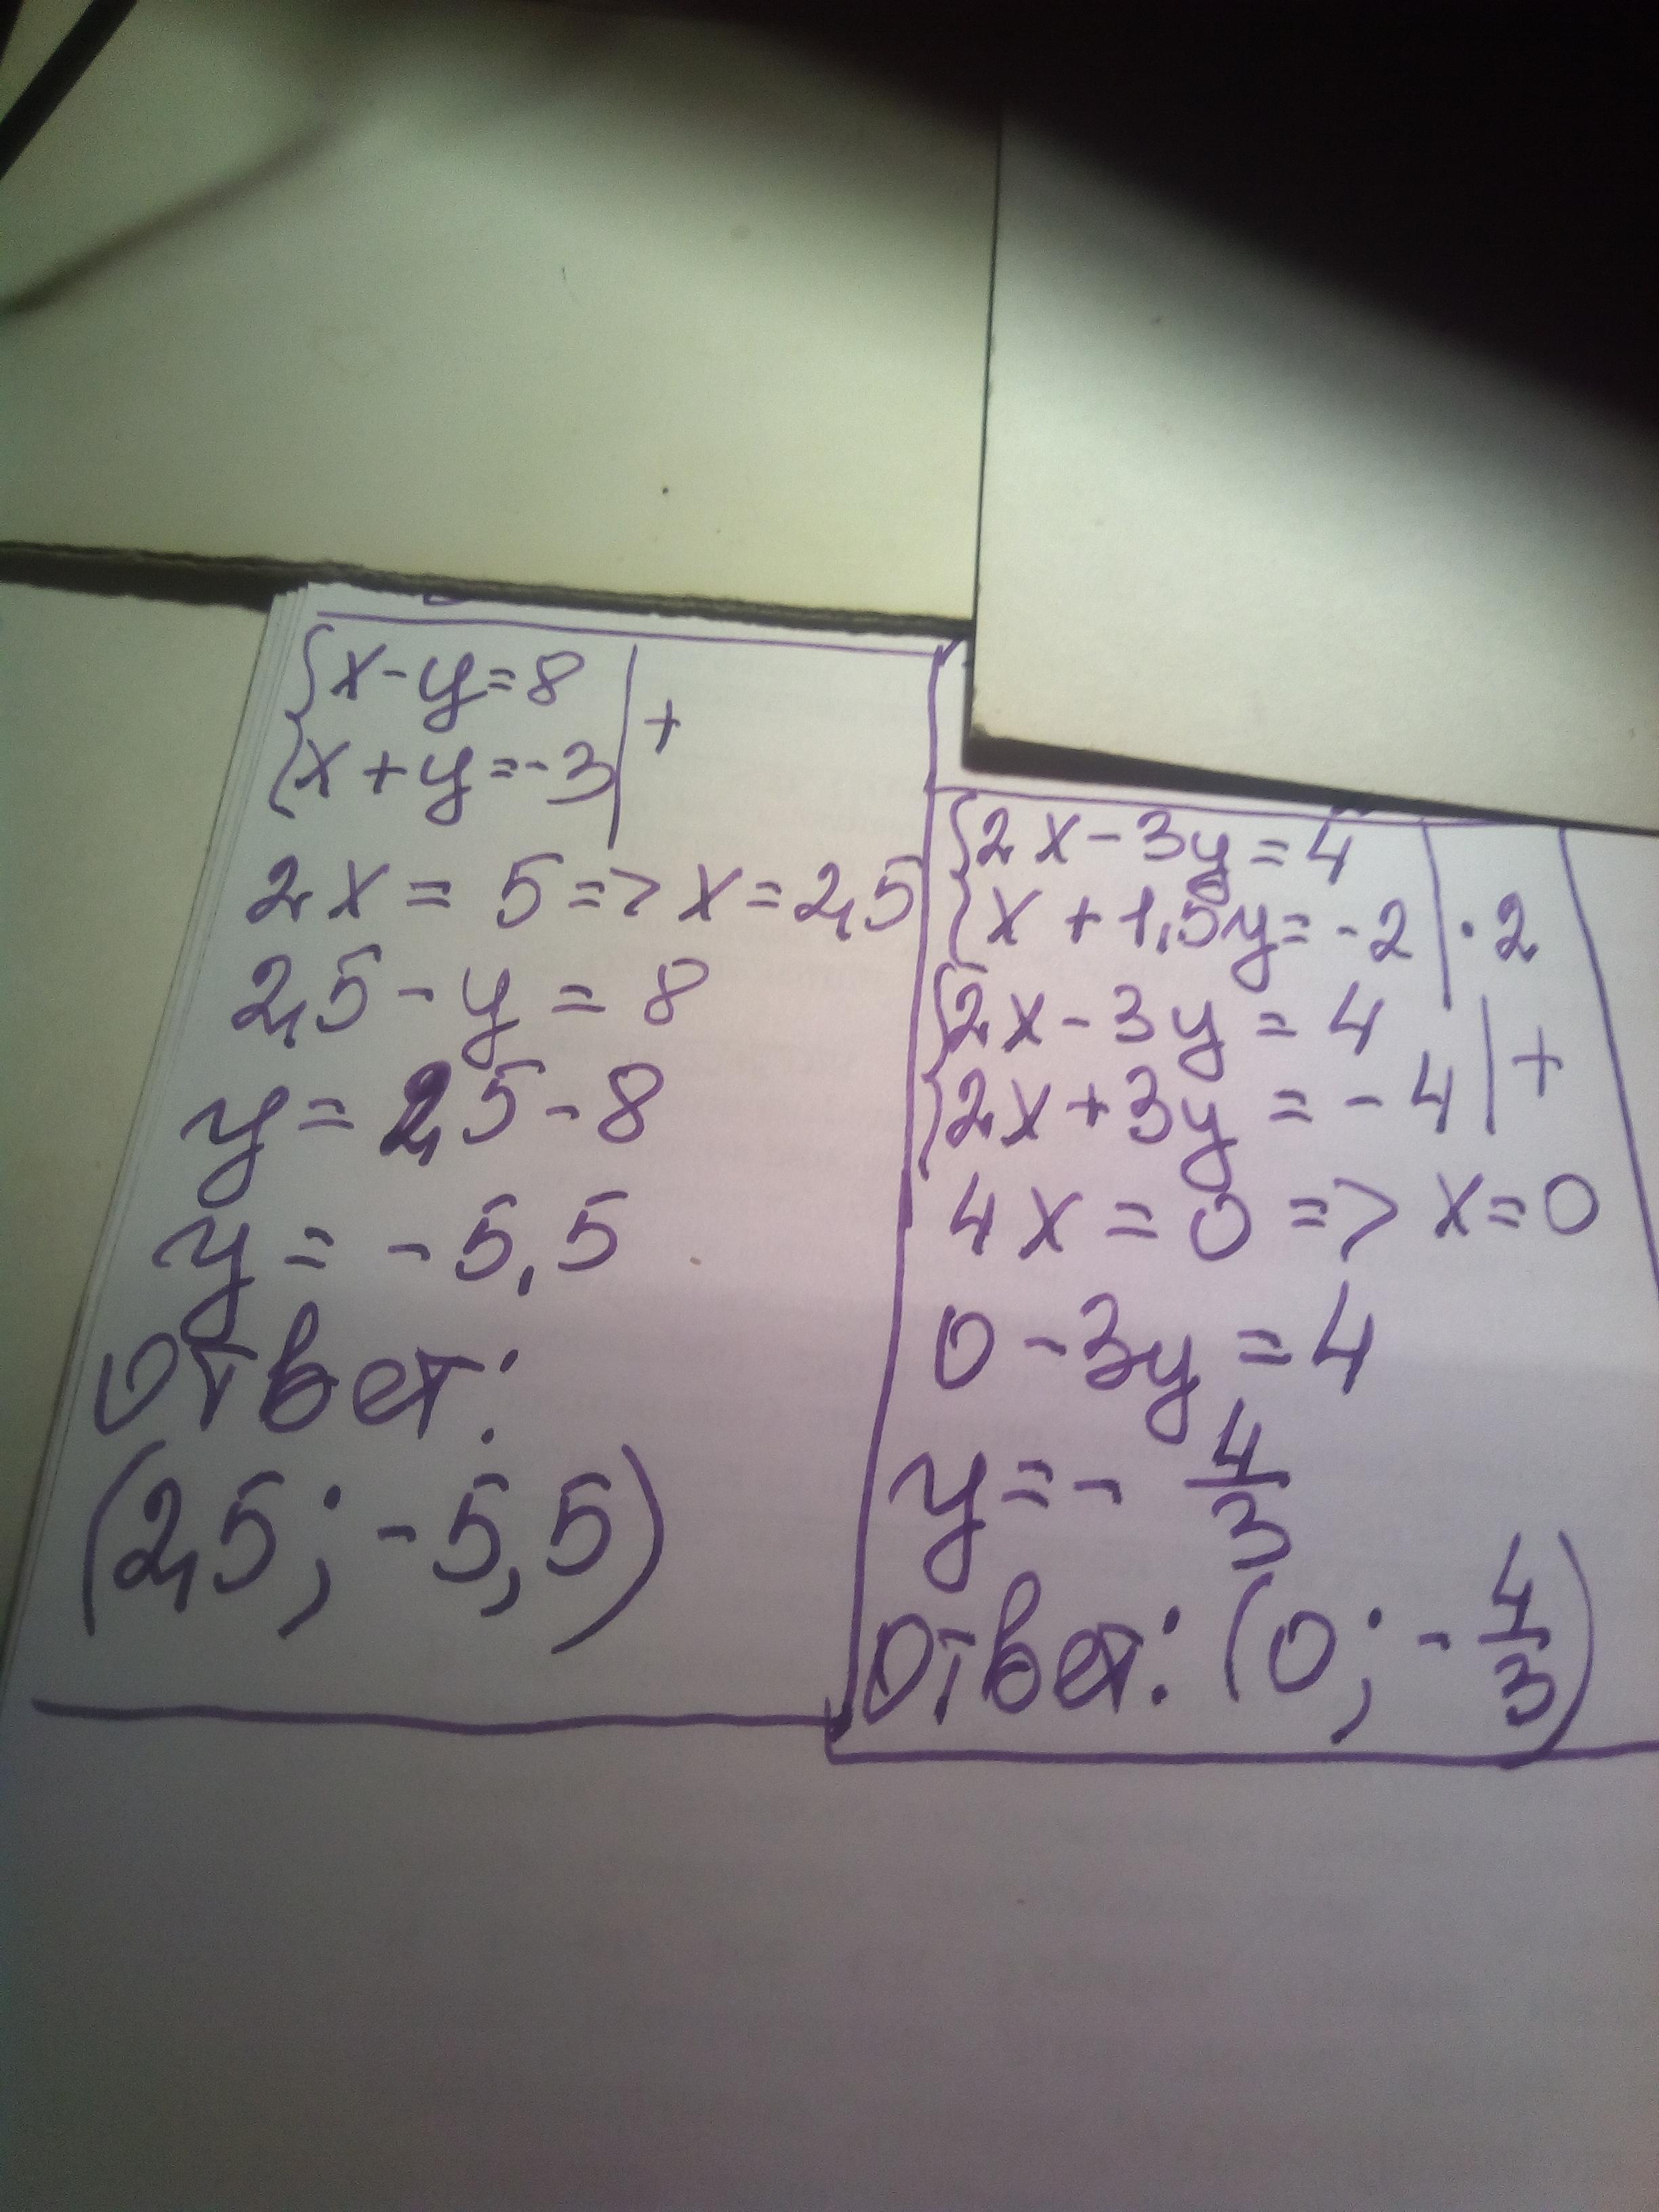 {x-y=8 | +
{x+y=-3 |
2x = 5 => x=2,5
2,5 - y = 8
y = 2,5 - 8
y = -5,5
Ответ:
(2,5; -5,5)
{2x-3y=4
{x+1,5y=-2 | · 2
{2x-3y=4 | +
{2x+3y=-4 |
4x = 0 => x=0
0-3y=4
y=- 4/3
Ответ: (0; - 4/3)